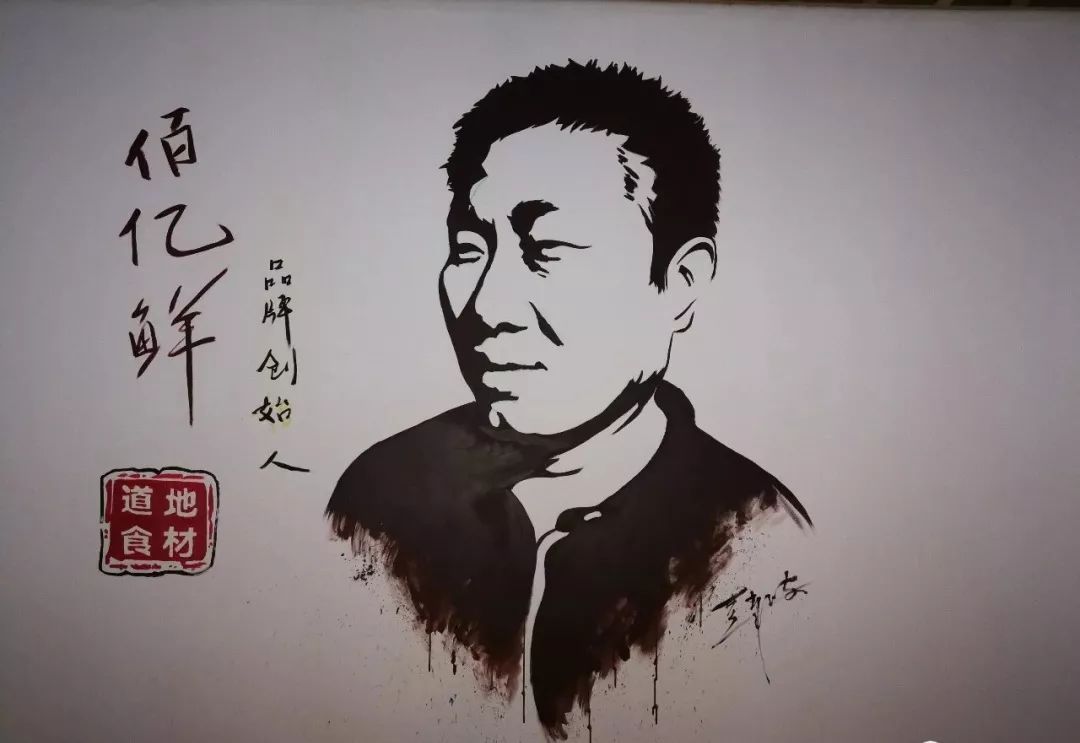 佰亿鲜
品牌创始人
道地
食材